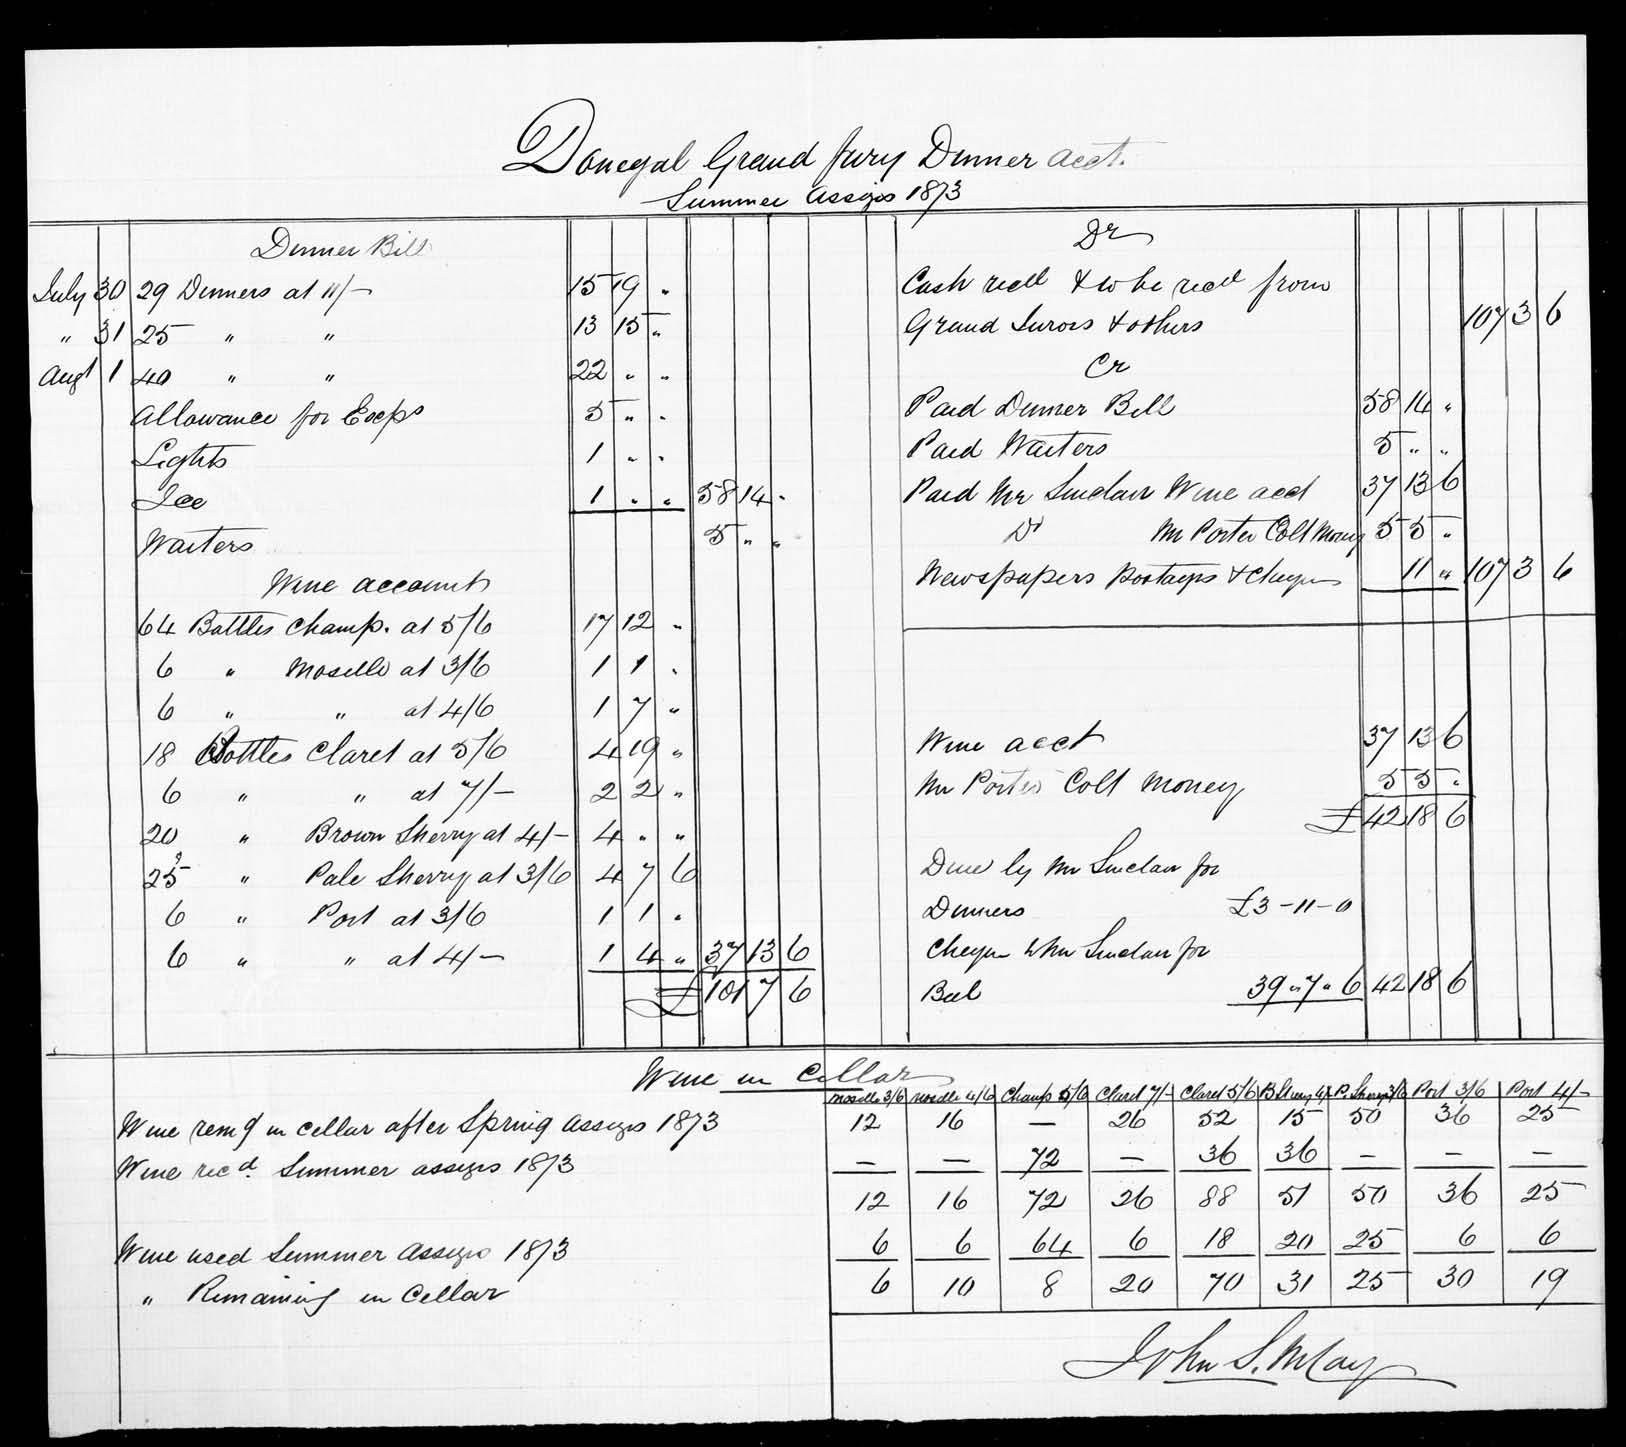 Donegal Grand Jury Dinner acct.
Summer Assizes 1873
Dinner Bill
July 30 29 Dinners at 11/- 15 19 "
" 31 25 " " 13 15 "
Augt 1 40 " " 22 " "
Allowance for 5 " "
Lights 1 " "
Ice 1 " " 58 14 "
Waiters 5 " "
Wine account
64 Bottles Champ. at 5/6 17 12 "
6 " Moselle at 3/6 1 1 "
6 " " at 4/6 1 7 "
18 Bottles Claret at 5/6 4 19 "
6 " " at 7/- 2 2 "
20 " Brown Sherry at 4/- 4 " "
25 " Pale Sherry at 3/6 4 7 6
6 " Port at 3/6 1 1 "
6 " " at 4/- 1 4 " 37 13 6
£ 101 7 6
Dr
Cash recd & to be recd from
Grand Jurors & others 107 3 6
Cr
Paid Dinner Bill 58 14 "
Paid Waiters 5 " "
Paid Mr Sinclair Wine acct 37 13 6
Do Mr Porter Colt Money 5 5 "
Newspapers Postages & Cheques 11 " 107 3 6
Wine acct 37 13 6
Mr Porter Colt Money 5 5 "
£ 42 18 6
Due by Mr Sinclair for
Dinners £3-11-0
Cheque to Mr Sinclair for
Bal 39 " 7 " 6 42 18 6
Wine in Cellar
Moselle 3/6 Moselle 4/6 Champ 5/6 Claret 7/- Claret 5/6 B Sherry 4/- P. Sherry 3/6 Port 3/6 Port 4/-
Wine remg in cellar after Spring Assizes 1873 12 16 — 26 52 15 50 36 25
Wine recd. Summer assizes 1873 — — 72 — 36 36 — — —
12 16 72 26 88 51 50 36 25
Wine used Summer Assizes 1873 6 6 64 6 18 20 25 6 6
" Remaining in Cellar 6 10 8 20 70 31 25 30 19
John S. McCay